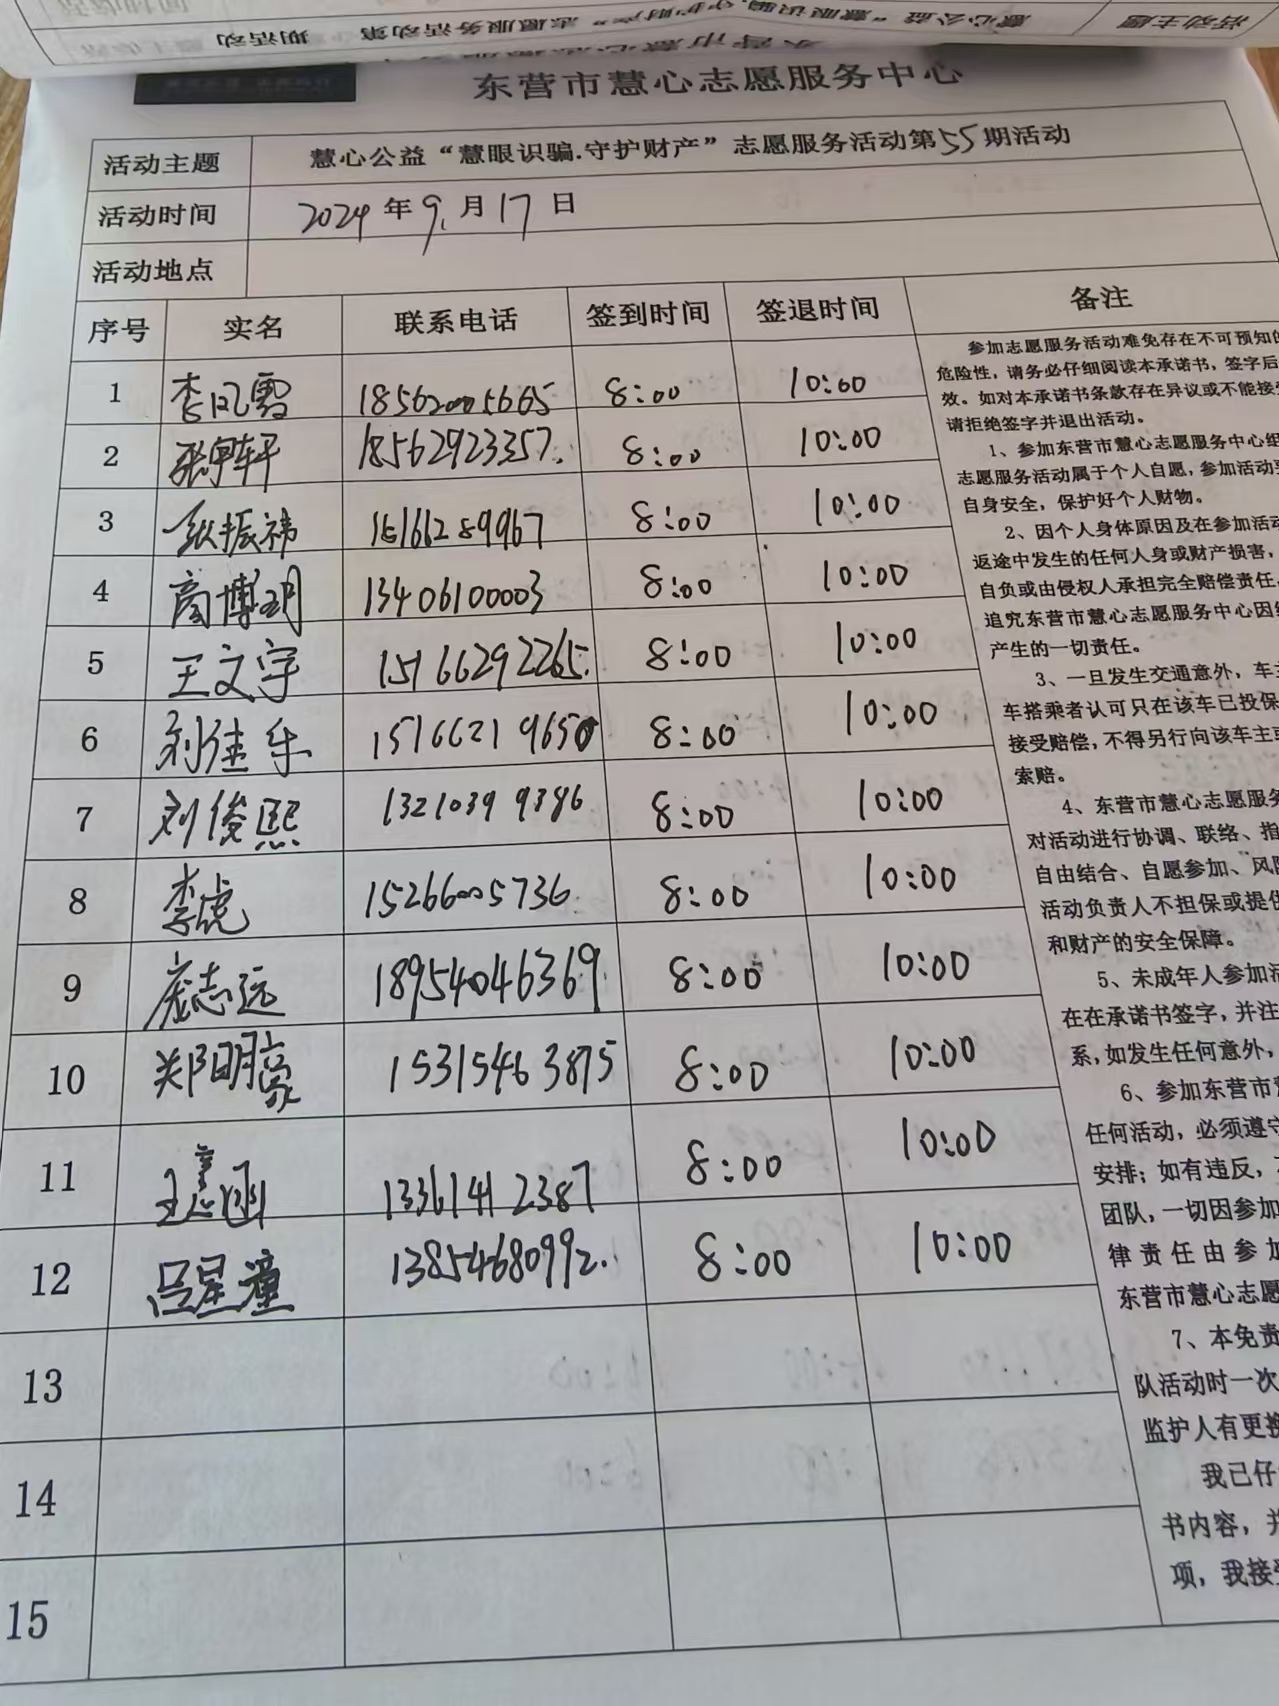 东营市慧心志愿服务中心
活动主题 慧心公益“慧眼识骗.守护财产”志愿服务活动第55期活动
活动时间 2024年9.月17日
活动地点
序号 实名 联系电话 签到时间 签退时间 备注
1 李风霞 18562005665 8:00 10:00
2 18562923357. 8:00 10:00
3 张振祎 15166289967 8:00 10:00
4 商博玥 13406100003 8:00 10:00
5 王文宇 15166292265. 8:00 10:00
6 刘佳乐 15166219650 8:00 10:00
7 刘俊熙 13210399386 8:00 10:00
8 李虎 15266005736. 8:00 10:00
9 庞志远 18954046369. 8:00 10:00
10 郑明豪 15315463875 8:00 10:00
11 王熹涵 13361412387 8:00 10:00
12 吕星潼 13854680992. 8:00 10:00
13
14
15
参加志愿服务活动难免存在不可预知的
危险性，请务必仔细阅读本承诺书，签字后
效。如对本承诺书条款存在异议或不能接受
请拒绝签字并退出活动。
1、参加东营市慧心志愿服务中心组
志愿服务活动属于个人自愿，参加活动要
自身安全，保护好个人财物。
2、因个人身体原因及在参加活动
返途中发生的任何人身或财产损害，
自负或由侵权人承担完全赔偿责任，
追究东营市慧心志愿服务中心因组
产生的一切责任。
3、一旦发生交通意外，车主
车搭乘者认可只在该车已投保
接受赔偿，不得另行向该车主或
索赔。
4、东营市慧心志愿服务
对活动进行协调、联络、指
自由结合、自愿参加、风险
活动负责人不担保或提供
和财产的安全保障。
5、未成年人参加活
在在承诺书签字，并注
系，如发生任何意外，
6、参加东营市慧
任何活动，必须遵守
安排；如有违反，
团队，一切因参加
律责任由参加
东营市慧心志愿
7、本免责
队活动时一次
监护人有更换
我已仔
书内容，并
项，我接受